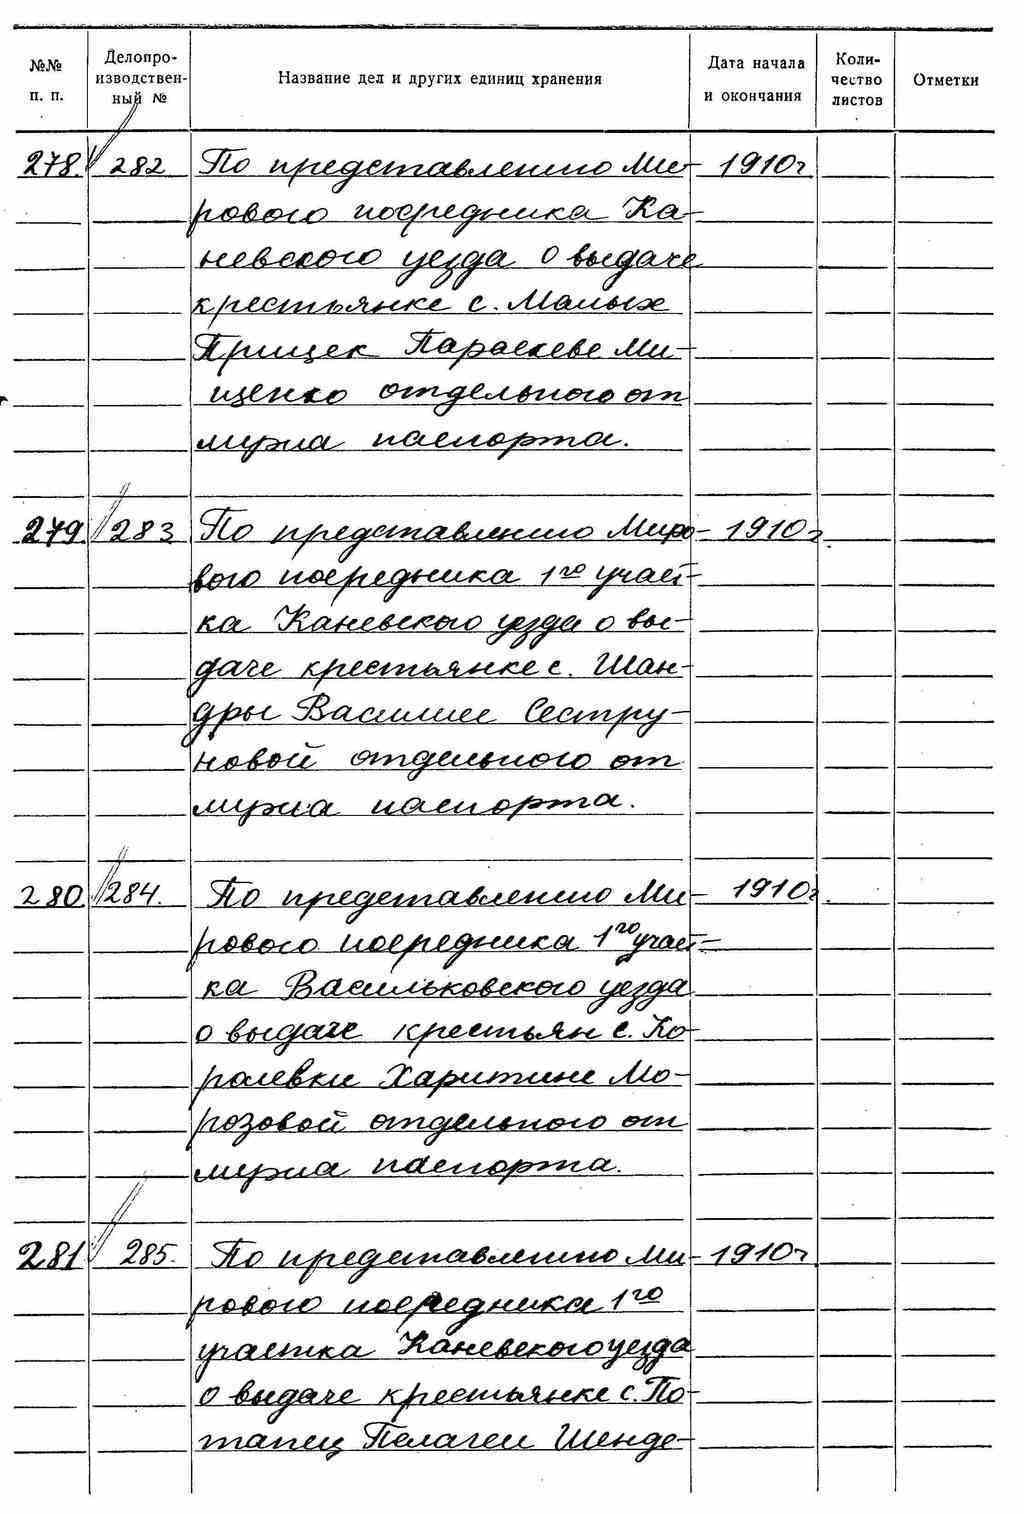 №№ п. п. Делопроизводственный № Название дел и других единиц хранения Дата начала и окончания Количество листов Отметки
278. 282 По представлению Ми- 1910г.
рового посредника Ка-
невского уезда о выдаче
крестьянке с. Малых
Прицек Параскеве Ми-
щенко отдельного от
мужа паспорта.
279. 283 По представлению Миро- 1910г.
вого посредника 1го участ-
ка Каневского уезда о вы-
даче крестьянке с. Шан-
дры Василисе Сестру-
новой отдельного от
мужа паспорта.
280. 284. По представлению Ми- 1910г.
рового посредника 1го участ-
ка Васильковского уезда
о выдаче крестьян с. Ко-
ролевки Харитине Мо-
розовой отдельного от
мужа паспорта.
281 285. По представлению Ми- 1910г.
рового посредника 1го
участка Каневского уезда
о выдаче крестьянке с. По-
тапец Пелагеи Шенде-